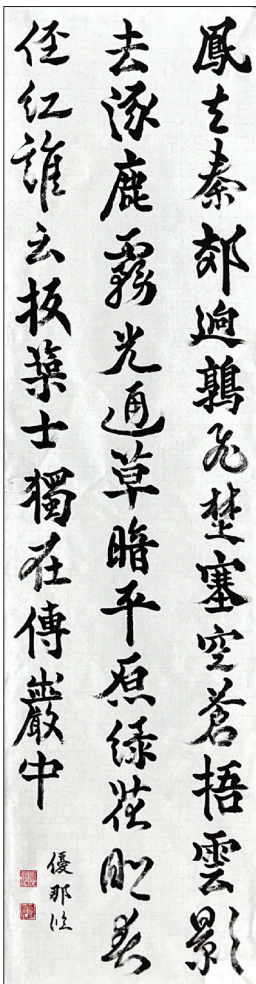 鳳去秦郊迥鶉飛楚塞空蒼梧雲影
去涿鹿霧光通草暗平原緑花明春
徑紅誰云板築士獨在傅巖中
優那臨